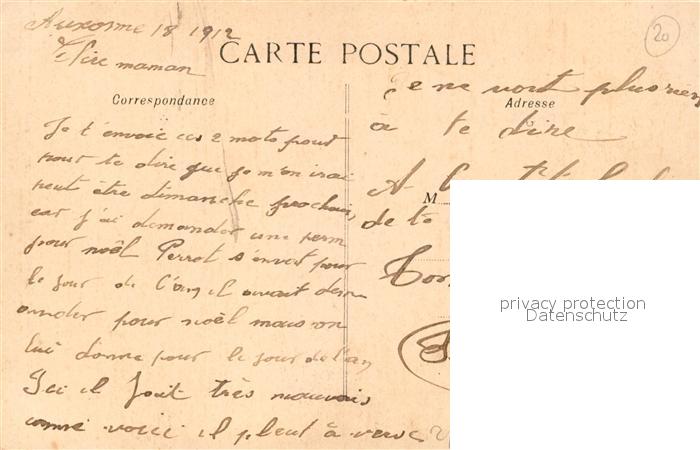 Auxonne 18 1912
CARTE POSTALE
Chère maman
Correspondance
Je t'envoie ces 2 mots pour
pour te dire que je m'en irai
peut être dimanche prochain,
car j'ai demander une perm
pour noël Perrot s en vat pour
le jour de l'an il avait dem
ander pour noël mais on
lui donne pour le jour de l'an
Ici il fait très mauvais
comme voici il pleut à verse
20
Je ne vois plus rien
Adresse
à te dire
M
de to
privacy protection
Datenschutz